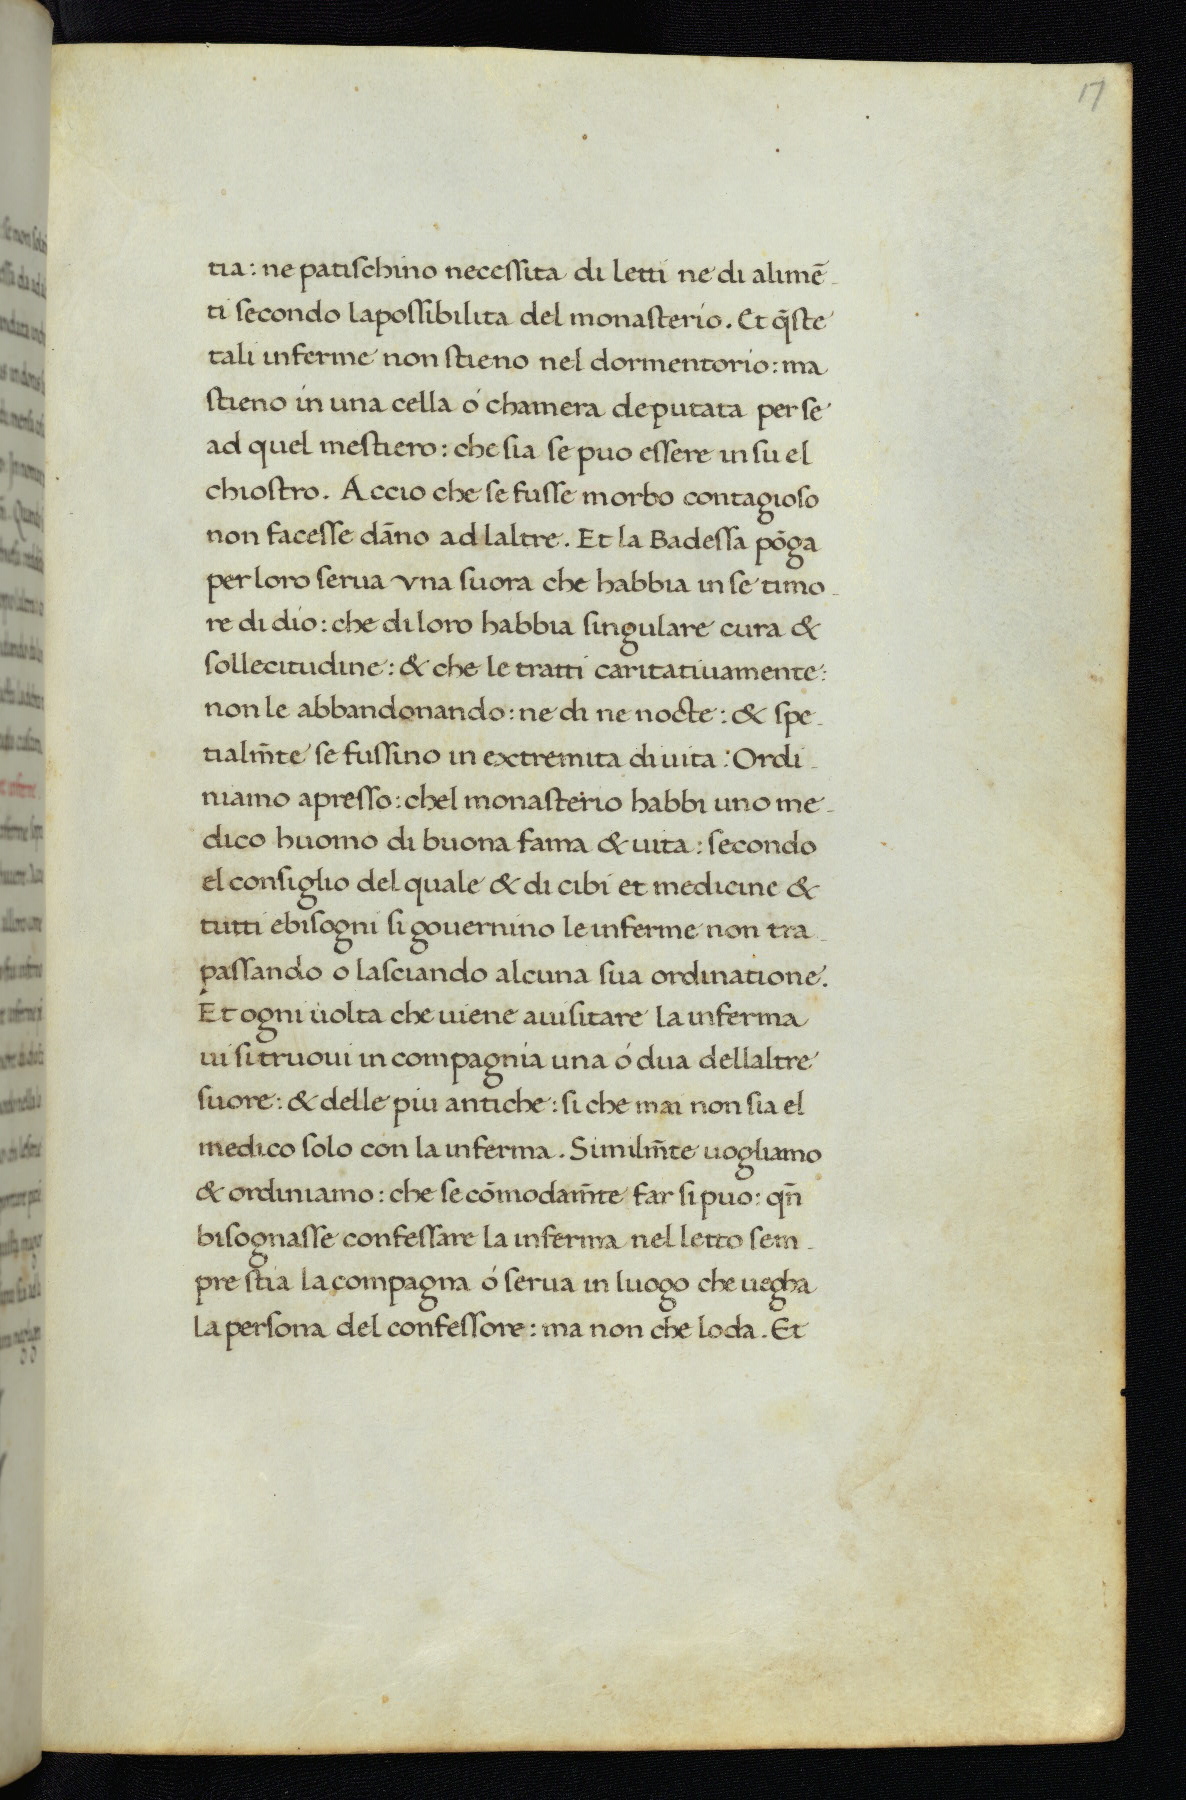 17
tia: ne patischino necessita di letti ne di alimē-
ti secondo lapossibilita del monasterio. Et q̄ste
tali inferme non stieno nel dormentorio: ma
stieno in una cella ó chamera deputata per se
ad quel mestiero: che sia se puo essere in su el
chiostro. Accio che se fusse morbo contagioso
non facesse dāno ad laltre. Et la Badessa pōga
per loro serua vna suora che habbia in se timo-
re di dio: che di loro habbia singulare cura &
sollecitudine: & che le tratti caritatiuamente:
non le abbandonando: ne di ne nocte: & spe-
tialm̄te se fussino in extremita di uita: Ordi-
niamo apresso: chel monasterio habbi uno me-
dico huomo di buona fama & uita: secondo
el consiglio del quale & di cibi et medicine &
tutti ebisogni si gouernino le inferme non tra-
passando o lasciando alcuna sua ordinatione.
Et ogni uolta che uiene auisitare la inferma
ui si truoui in compagnia una ó dua dellaltre
suore: & delle piu antiche: si che mai non sia el
medico solo con la inferma. Similm̄te uogliamo
& ordiniamo: che se cōmodam̄te far si puo: qn̄
bisognasse confessare la inferma nel letto sem-
pre stia la compagna ó serua in luogo che uegha
la persona del confessore: ma non che loda. Et